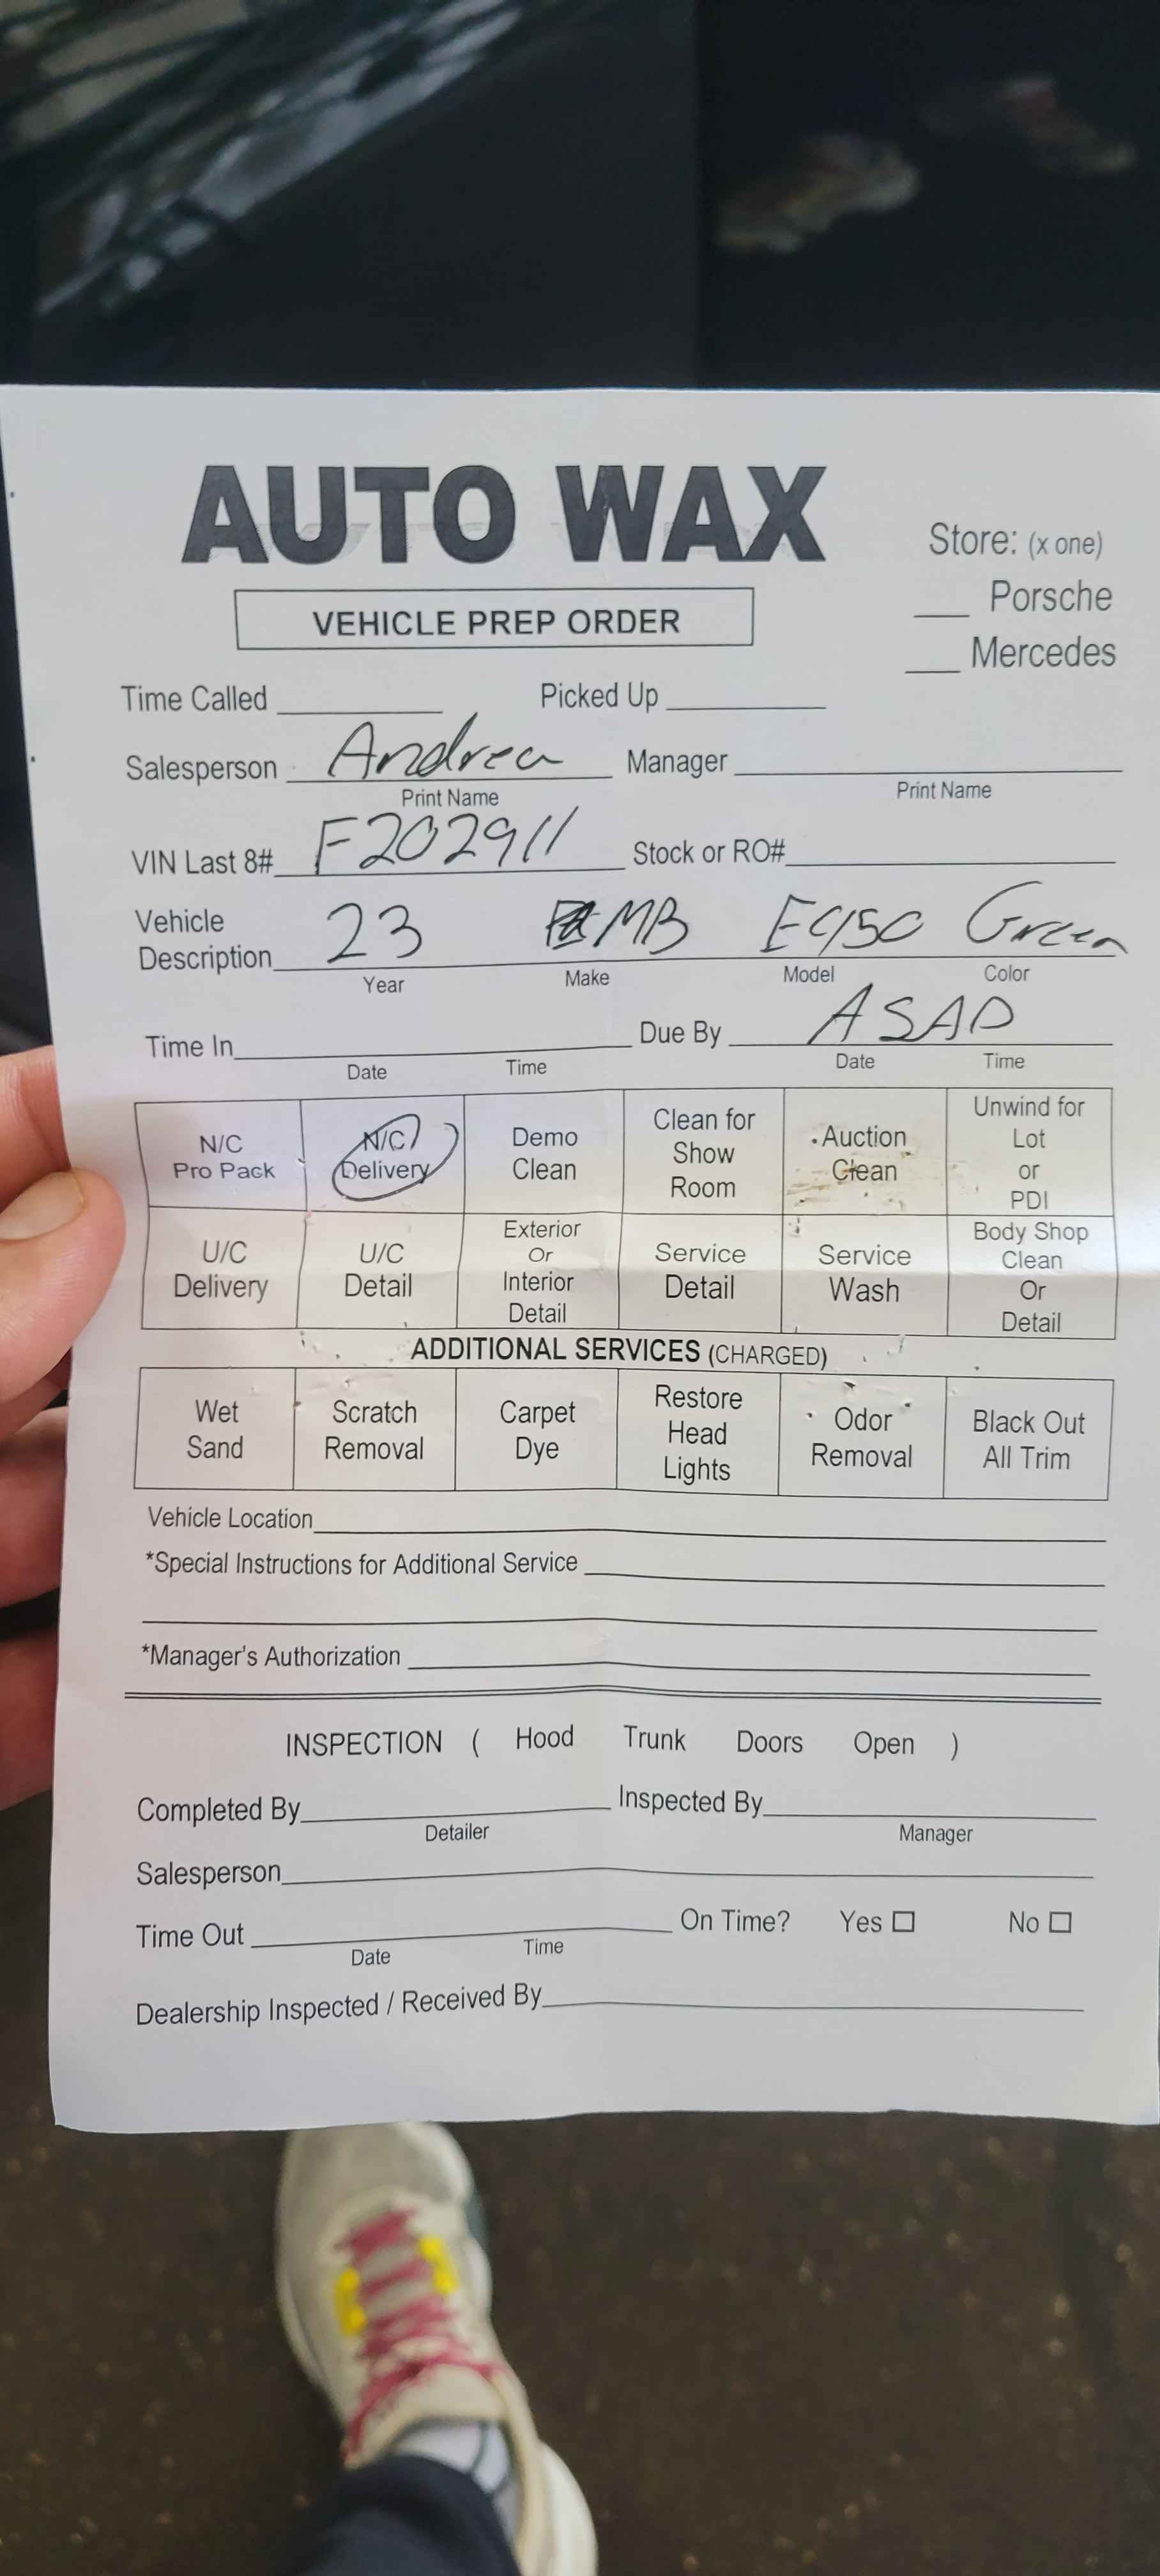 AUTO WAX
Store: (x one)
VEHICLE PREP ORDER
___ Porsche
___ Mercedes
Time Called Picked Up
Salesperson Andrea Manager
Print Name Print Name
VIN Last 8# F202911 Stock or RO#
Vehicle Description 23 MB Green
Year Make Model Color
Time In Due By ASAP
Date Time Date Time
N/C Pro Pack N/C Delivery Demo Clean Clean for Show Room Auction Clean Unwind for Lot or PDI
U/C Delivery U/C Detail Exterior Or Interior Detail Service Detail Service Wash Body Shop Clean Or Detail
ADDITIONAL SERVICES (CHARGED)
Wet Sand Scratch Removal Carpet Dye Restore Head Lights Odor Removal Black Out All Trim
Vehicle Location
*Special Instructions for Additional Service
*Manager's Authorization
INSPECTION ( Hood Trunk Doors Open )
Completed By Inspected By
Detailer Manager
Salesperson
Time Out On Time? Yes ☐ No ☐
Date Time
Dealership Inspected / Received By